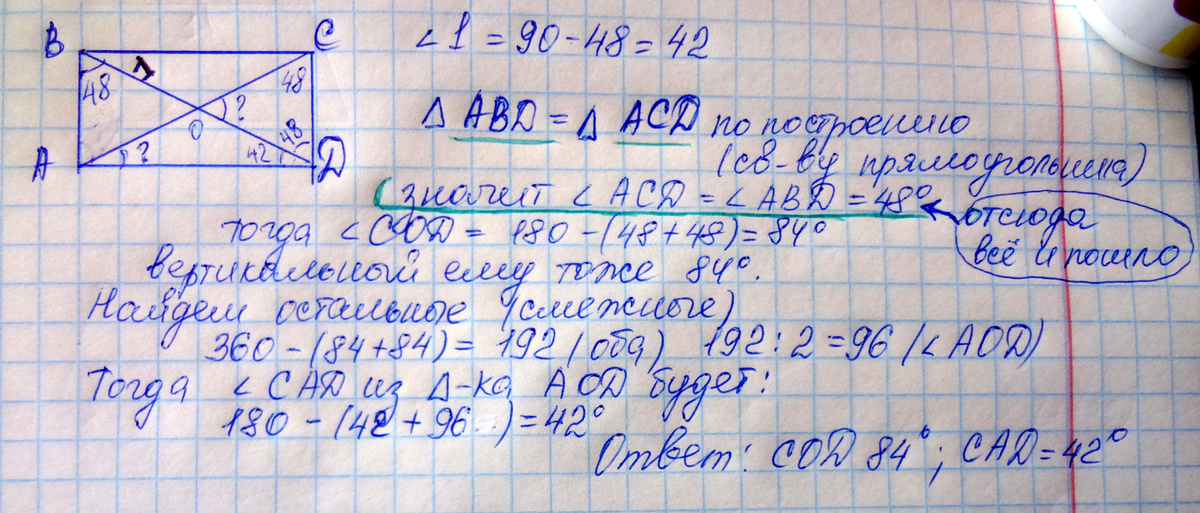 B C
48 1 48
? O
48
A ? 42 D
∠1 = 90 - 48 = 42
Δ ABD = Δ ACD по построению
(св-ву прямоугольника)
(значит ∠ ACD = ∠ ABD = 48°
отсюда
всё и пошло
тогда ∠COD = 180 - (48 + 48) = 84°
вертикальный ему тоже 84°.
Найдем остальные (смежные)
360 - (84 + 84) = 192 (оба) 192 : 2 = 96 (∠ AOD)
Тогда ∠ CAD из Δ-ка AOD будет:
180 - (42 + 96) = 42°
Ответ: COD 84°; CAD = 42°